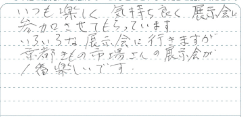 いつも楽しく 気持ち良く 展示会に
参加させてもらっています
いろいろな展示会に行きますが
京都きもの市場さんの展示会が
1番楽しいです。